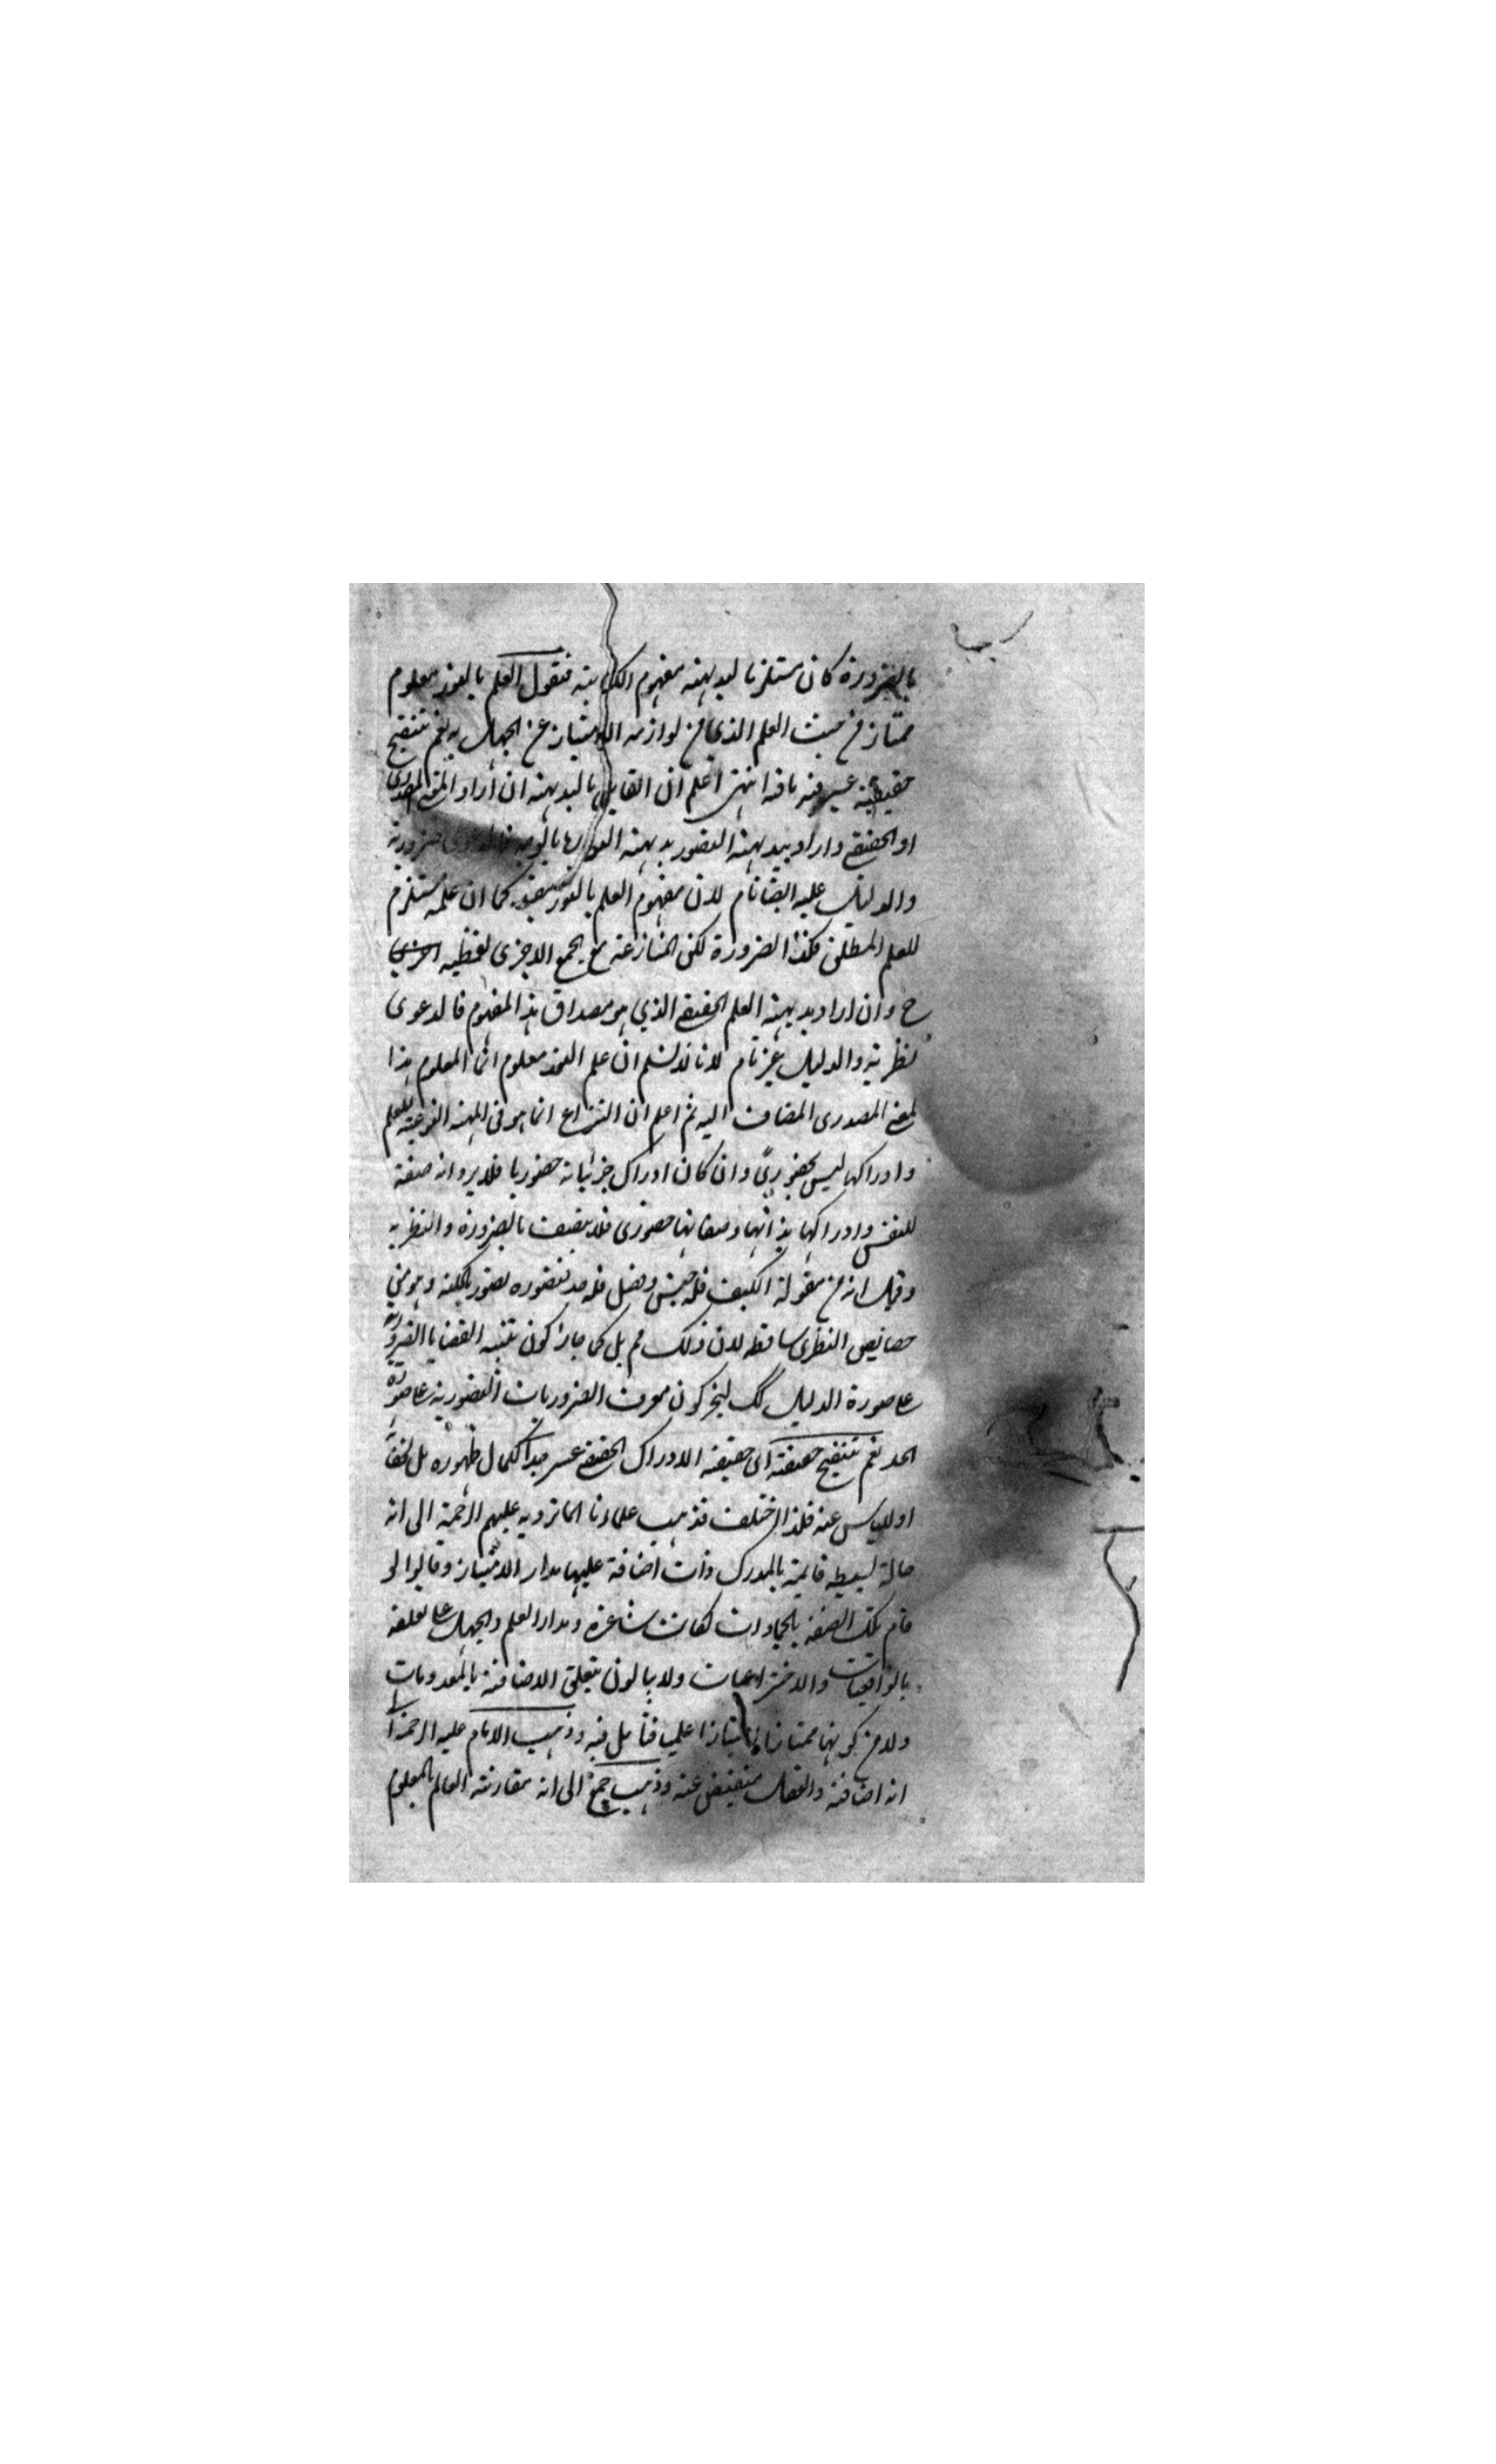 بالضرورة كان مستلزما لبديهته مفهوم الكل بته فنقول العلم بالنور معلوم
ممتاز من حيث العلم الذي من لوازمه الامتياز عن الجهل به نعم تنقيح
حقيقته عسير فيه ما فيه انتهى اعلم ان القائل بالبديهة ان أراد المعنى المصدري
او الحقيقي واراد ببديهة التصور بديهة بالوجه ضرورية
والدليل عليه ايضا تام لان مفهوم العلم بالنور مقيد كما ان علمه مستلزم
للعلم المطلق فكذا الضرورة لكن المنازعة مع الجمع الاخرى لفظيه
ح وان اراد بديهة العلم الحقيقي الذي هو مصداق هذا المفهوم فالدعوى
نظرية والدليل غير تام لانا لا نسلم ان علم النور معلوم انما المعلوم هذا
لمعنى المصدرى المضاف اليه ثم اعلم ان النزاع انما هو فى المهية النوعية للعلم
وادراكها ليس بحضوري وان كان ادراك جزئياته حضوريا فلا يرد انه صفة
للنفس وادراكها بذاتها وصفاتها حضورى فلا يتصف بالضرورة والنظرية
وقيل انه من مقولة الكيف فله جنس وفصل فله حد فتصوره تصور بالكنه وهو من
خصائص النظرى ساقط لان ذلك مم بل كما جاز كون تنبيه القضايا الضرورية
على صورة الدليل كك ليجز كون معرف الضروريات التصورية على صورة
الحد نعم تنقيح حقيقته اى حقيقة الادراك الحقيقي عسير جدا لكمال ظهوره بل لخفاء
اولياس عنه فلذا اختلف فذهب علماءنا الماتريديه عليهم الرحمة الى انه
حالة بسيطه قائمة بالمدرك ذات اضافة عليها مدار الامتياز وقالوا لو
قام تلك الصفة بالجمادات لكانت شاعرة ومدار العلم والجهل على تعلقه
بالواقعيات والاختراعيات ولا يبالون بتعلق الاضافة بالمعدومات
ولا من كونها ممتازا امتيازا علميا فتأمل فيه وذهب الامام عليه الرحمة الى
انه اضافة والعقل منقبض عنه وذهب جمع الى انه مقارنة العالم بالمعلوم